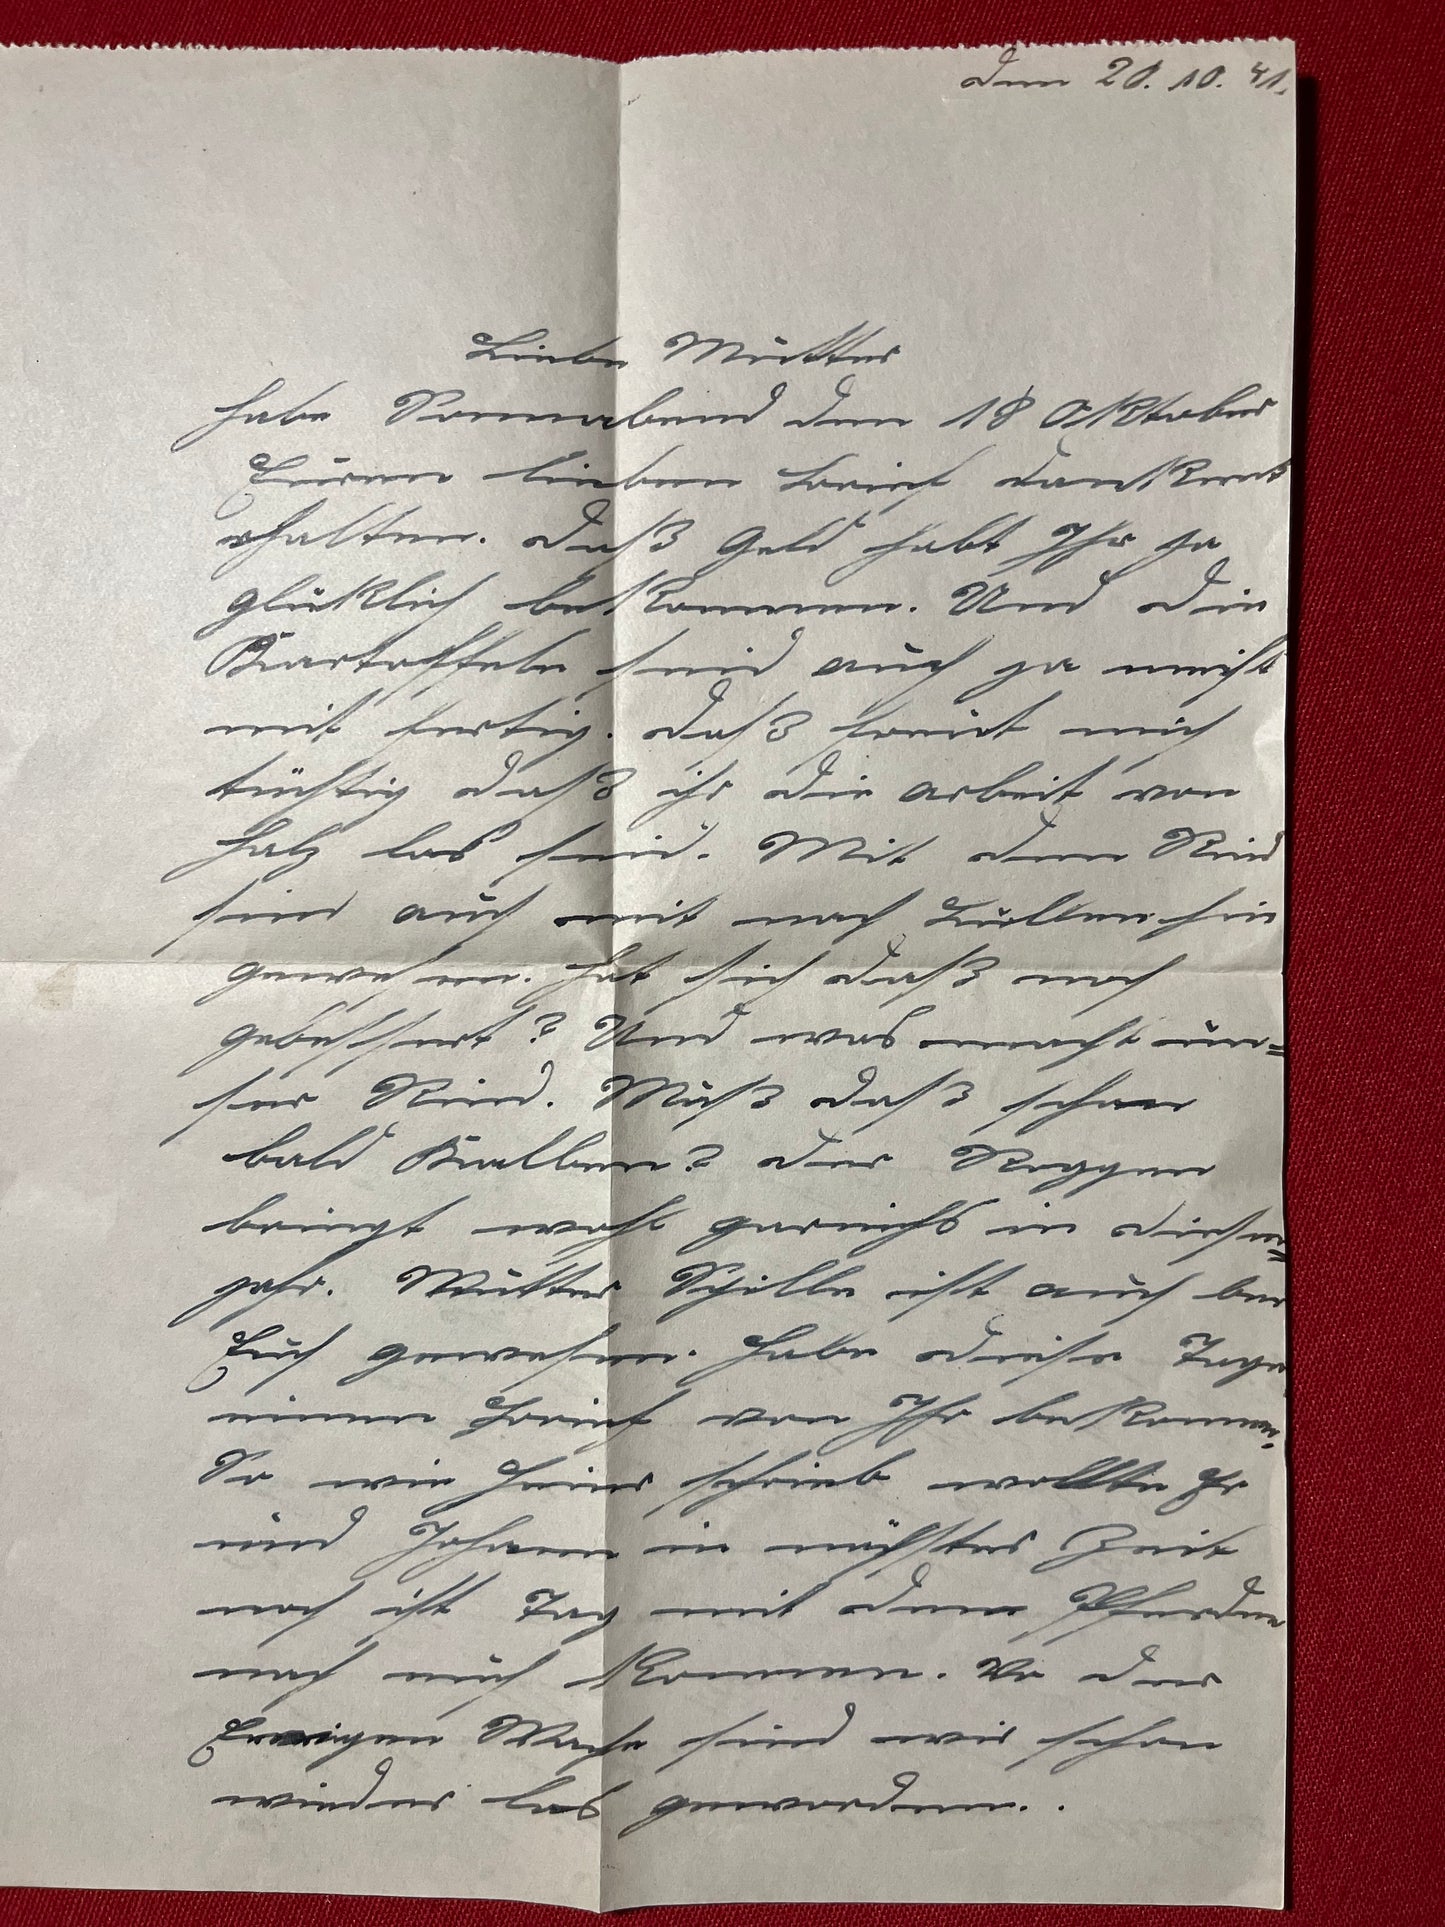 den 20. 10. 41.
Liebe Mutter
habe Sonnabend den 18 Oktober
Euren lieben Brief dankent
erhalten. Daß Geld habt Ihr ja
glüklich bekommen. Und die
Kartoffeln seid auch ja meist
mit fertig. Daß freut mich
tüchtig daß ihr die arbeit von
Halz los seid. Mit dem Rind
sind auch mit nach hin
gewesen. Hat sich daß noch
gebessert? Und was macht un=
ser Rind. Muß daß schon
bald Kalben? Der Roggen
bringt wohl garnichs in diesen=
jahr. Mutter Schille ist auch bei
Euch gewesen. Habe diese Tage
einen Brief von Ihr bekommen.
So wie Heine schrieb wollte Er
und Johann in nächster Zeit
noch ist Tag mit den Pferden
nach mich kommen. Vo der
Woche sind wir schon
wieder los geworden..